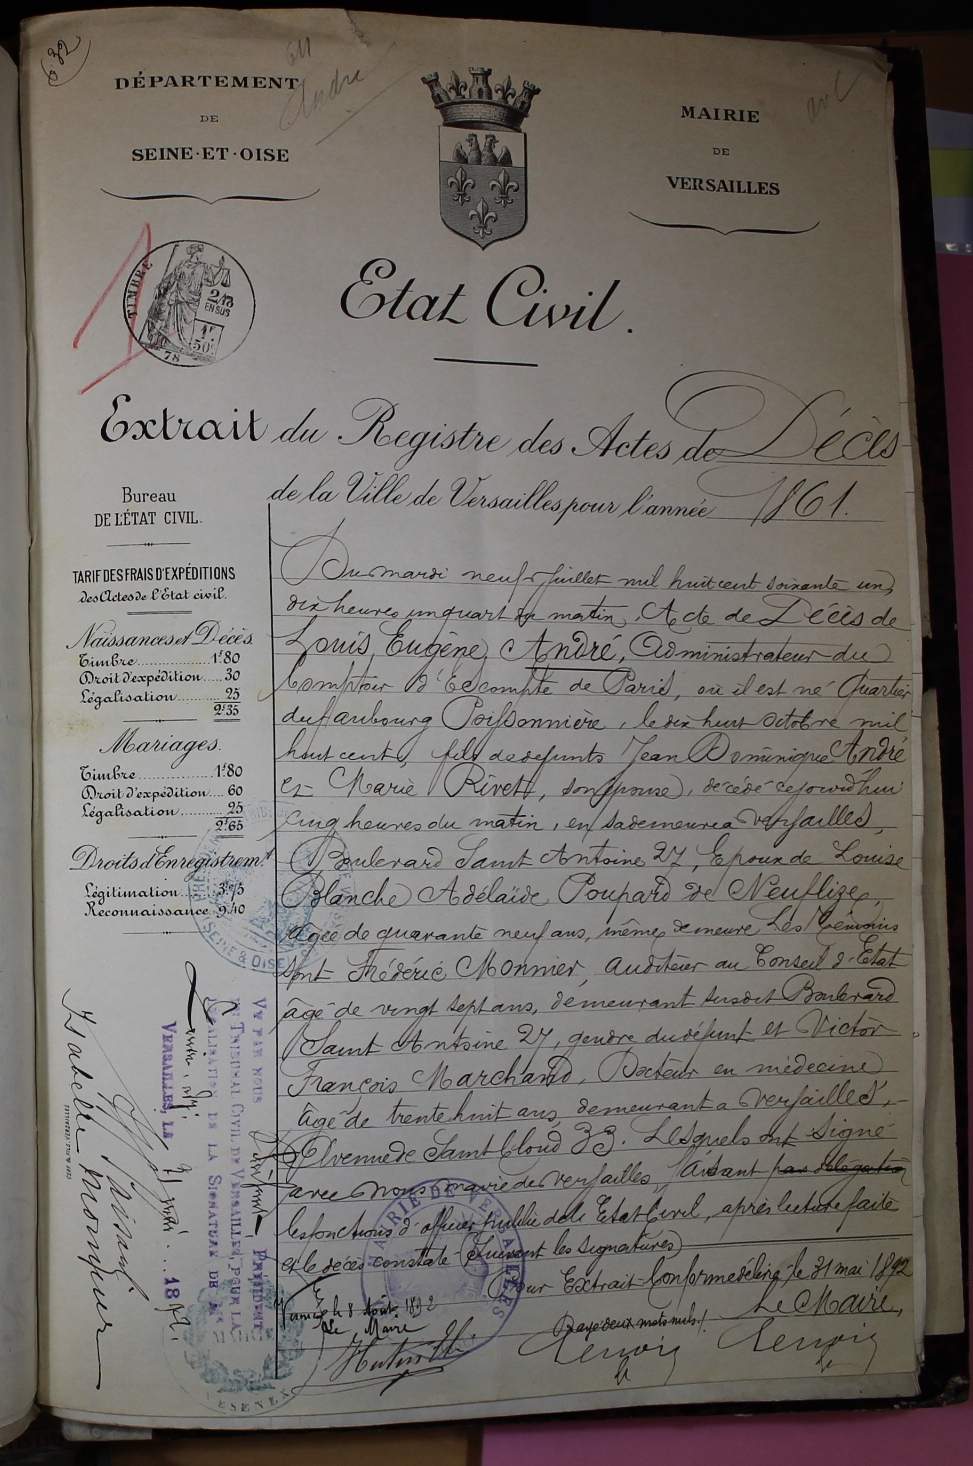 DÉPARTEMENT
DE
SEINE-ET-OISE
MAIRIE
DE
VERSAILLES
André
TIMBRE
2/10
EN SUS
1F
50c
78
Etat Civil.
Extrait du Registre des Actes de Décès
de la Ville de Versailles pour l'année 1861.
Bureau
DE L'ÉTAT CIVIL.
TARIF DES FRAIS D'EXPÉDITIONS
des Actes de l'Etat civil.
Naissances et Décès
Timbre 1f80
Droit d'expédition 30
Légalisation 25
2f35
Mariages.
Timbre 1f80
Droit d'expédition 60
Légalisation 25
2f65
Droits d'Enregistremt
Légitimation 3f75
Reconnaissance 9.40
Du mardi neuf Juillet mil huit cent soixante un,
dix heures un quart du matin. Acte de Décès de
Louis Eugène André, Administrateur du
Comptoir d'Escompte de Paris, où il est né quartier
du faubourg Poissonnière, le dix huit octobre mil
huit cent, fils de defunts Jean Dominique André
et Marie Rivet, son épouse, décédé cejourd'hui
cinq heures du matin, en sa demeure a Versailles,
Boulevard Saint Antoine 27, Epoux de Louise
Blanche Adélaïde Poupard de Neuflize,
agée de quarante neuf ans, même demeure. Les témoins
sont Frédéric Monnier, auditeur au Conseil d'Etat
âgé de vingt sept ans, demeurant susdit Boulevard
Saint Antoine 27, gendre du défunt et Victor
François Marchand, Docteur en médecine
âgé de trente huit ans, demeurant a Versailles,
Avenue de Saint Cloud 33. Lesquels ont signé
avec Nous maire de Versailles, faisant par délégation
les fonctions d'officier public de l'Etat Civil, après lecture faite
et le décès constaté (Suivent les signatures)
Pour Extrait Conforme délivré le 31 mai 1892
Le Maire,
Rayé deux mots nuls.
Lenoir
Lenoir
le 8 Août 1892
Le Maire
VU PAR NOUS PRÉSIDENT
DU TRIBUNAL CIVIL DE VERSAILLES, POUR LA
LÉGALISATION DE LA SIGNATURE DE M.
VERSAILLES, LE 31 mai 1892
MAIRIE DE VERSAILLES
SEINE & OISE
Isabelle Monquer